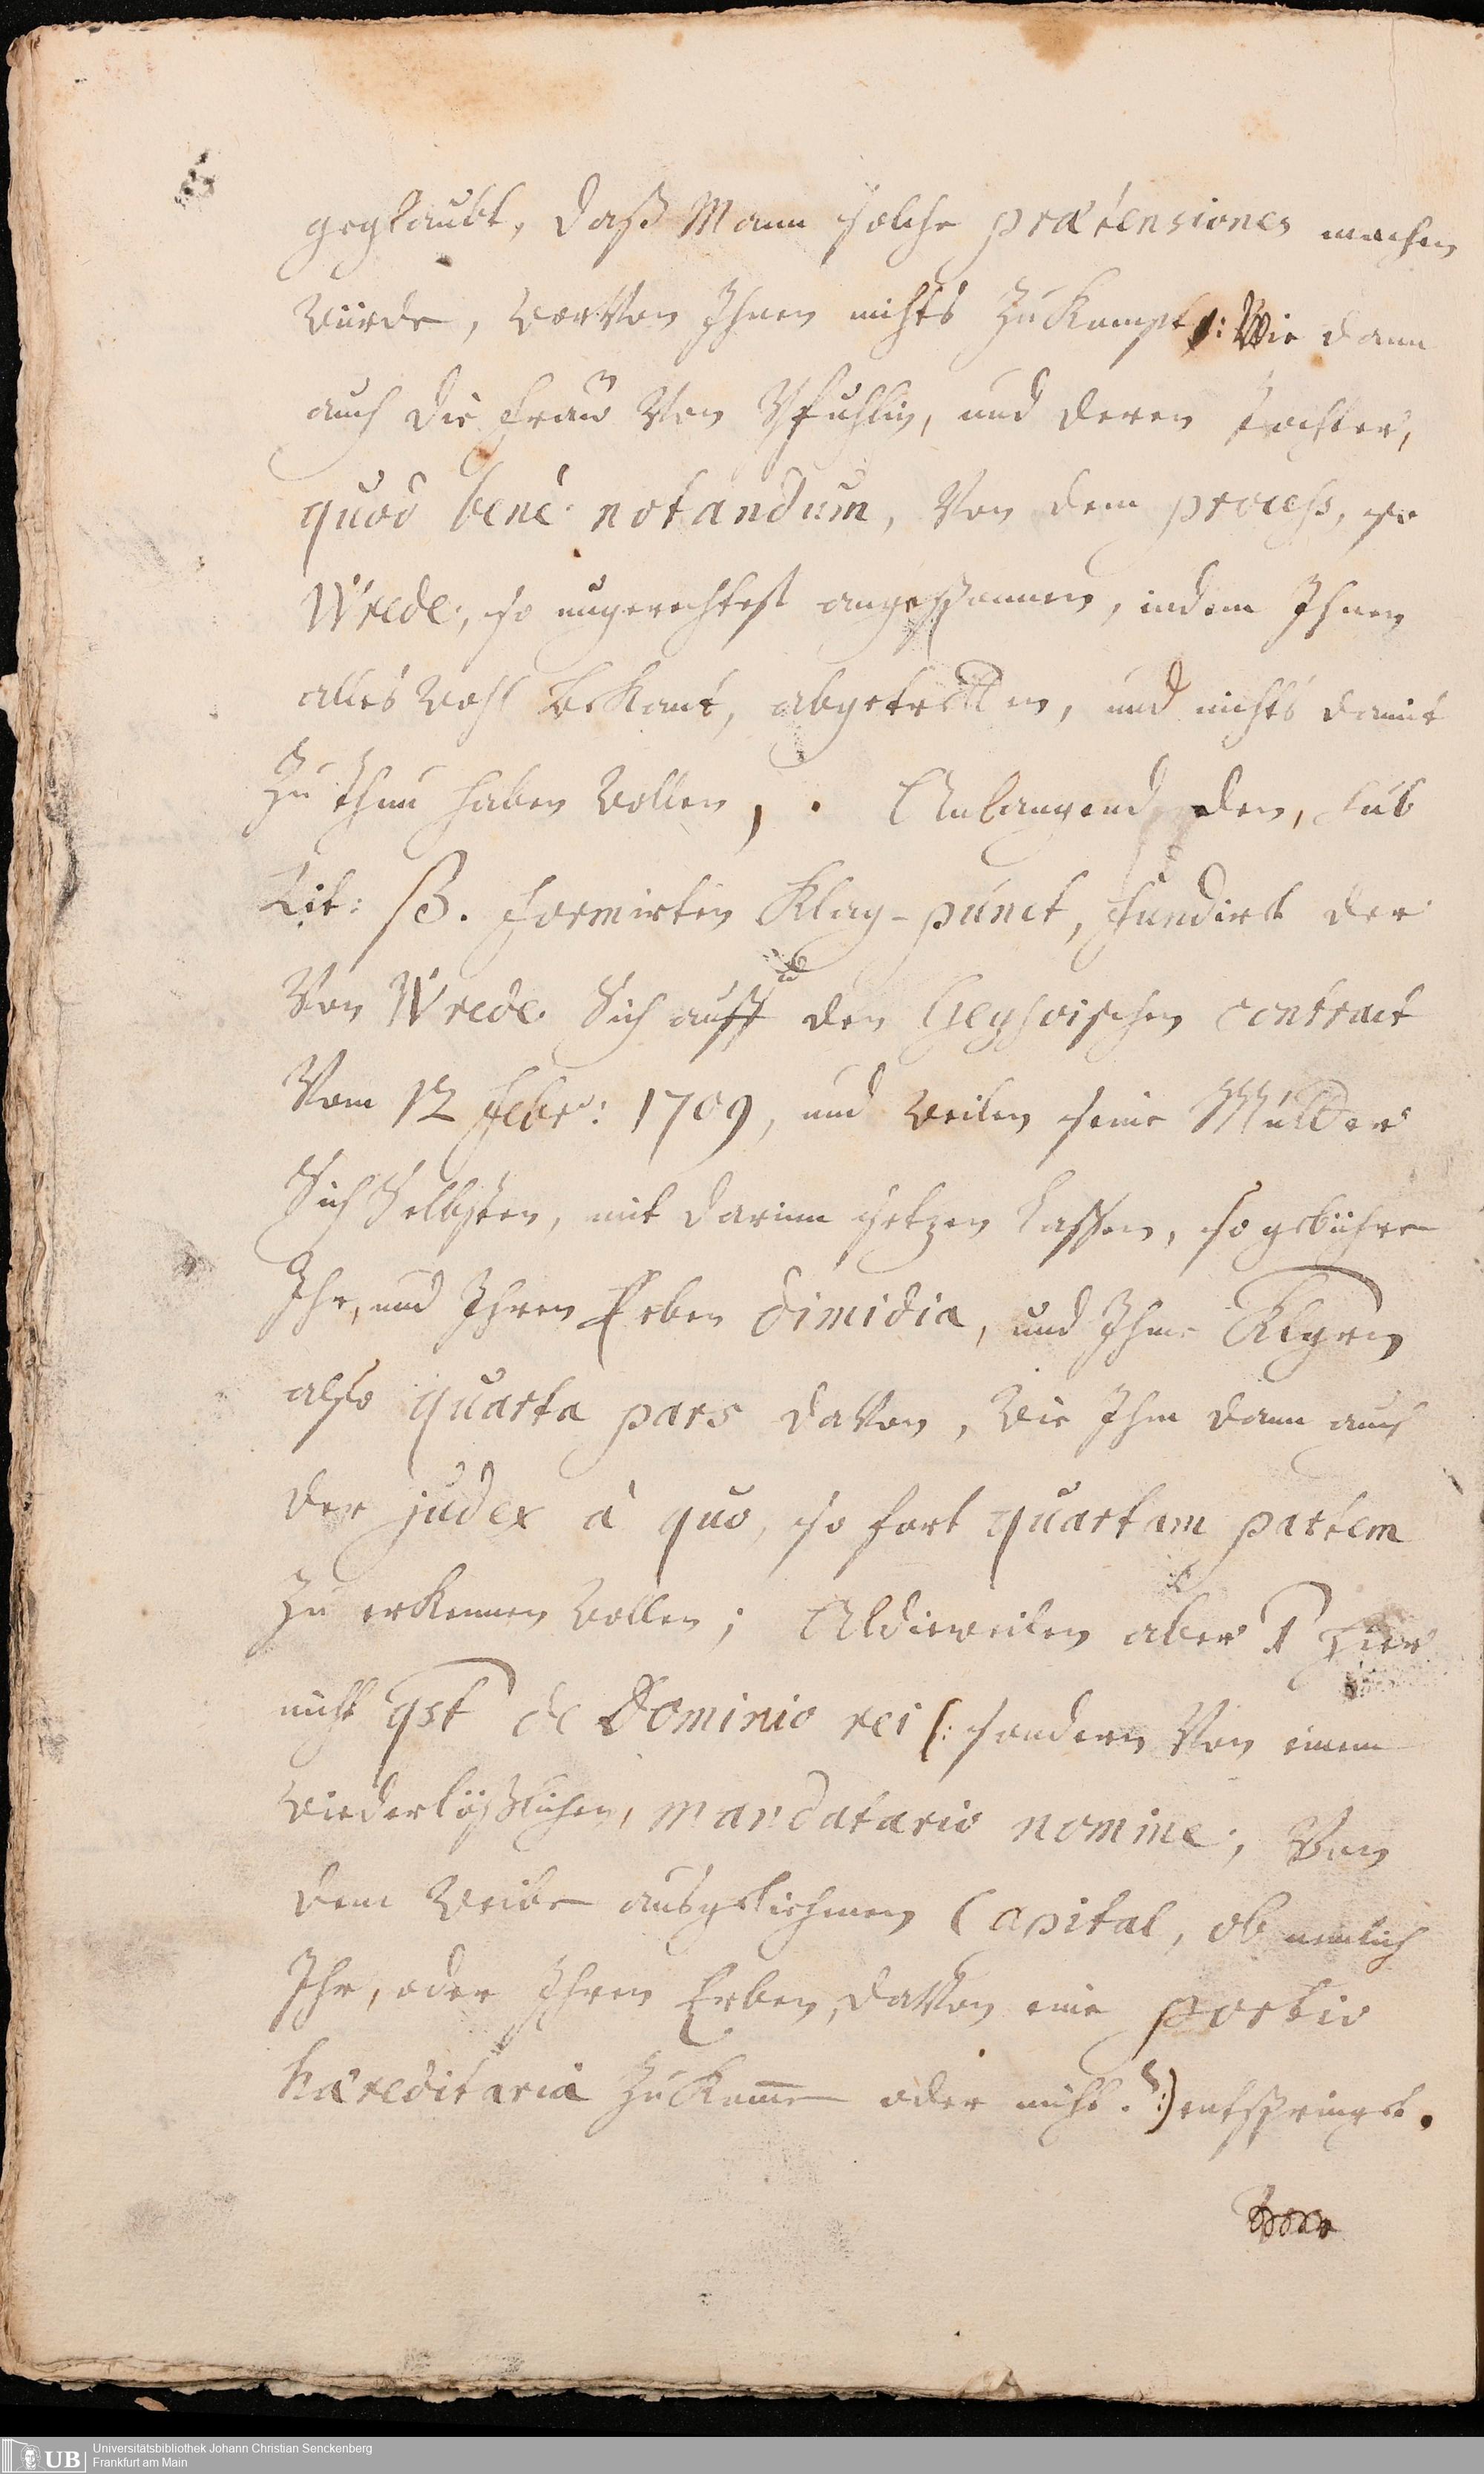 geglaubt, daß Mann solche prætensiones machen
würde, worVon Ihnen nichts zu Kompt /: Wie dann
auch die frau Von Pfuhlin, und deren tochter,
quod bene notandum, Von dem process, so
Wrede, so ungerechtest angespannen, indem Ihnen
alles wohl beKant, abgetretten, und nichts damit
Zu thun haben wollen, . Anlangend den, sub
Lit: B. formirten Klag-punct, fundirt der
Von Wrede. Sich auff den Geysoischen contract
Vom 12 febr: 1709, und weilen seine Mutter
Sich Selbsten, mit darinn setzen lassen, so gebühre
Ihr, und Ihren Erben dimidia, und Ihme Klgern
also quarta pars daVon, wie Ihm dann auch
der judex à quo, so fort quartam partem
Zu erkennen wollen; Aldieweilen aber hier
nicht qst de Dominio rei (: sondern Von einem
wiederlößlichen, mandatario nomine, Von
dem Weibe ausgeliehenen Capital, ob nemlich
Ihr, oder Ihren Erben, daVon eine portio
hæreditaria zu Kom̄e oder nicht. :) entspringet.
Universitätsbibliothek Johann Christian Senckenberg
Frankfurt am Main
UB